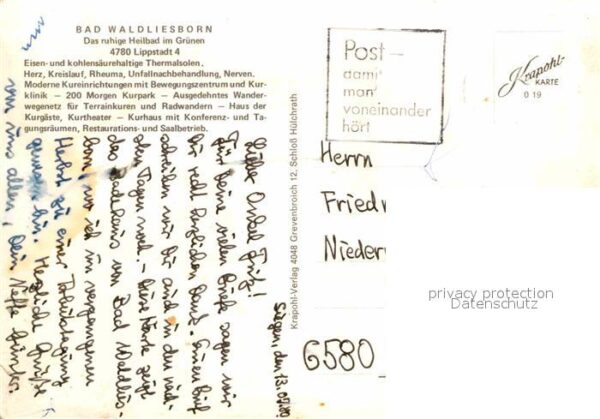 BAD WALDLIESBORN
Das ruhige Heilbad im Grünen
4780 Lippstadt 4
Eisen- und kohlensäurehaltige Thermalsolen.
Herz, Kreislauf, Rheuma, Unfallnachbehandlung, Nerven.
Moderne Kureinrichtungen mit Bewegungszentrum und Kur-
klinik — 200 Morgen Kurpark — Ausgedehntes Wander-
wegenetz für Terrainkuren und Radwandern — Haus der
Kurgäste, Kurtheater — Kurhaus mit Konferenz- und Ta-
gungsräumen, Restaurations- und Saalbetrieb.
Siegen, den 13.02.80
Lieber Onkel Fritz!
Für Deine vielen Briefe sagen wir
Dir recht herzlichen Dank. Einen Brief
schreiben wir Dir auch in den näch-
sten Tagen mal. - Diese Karte zeigt
das Badehaus von Bad Waldlies-
born, wo ich im vergangenen
Herbst zu einer Arbeitstagung
gewesen bin. Herzliche Grüße
von uns allen, Dein Neffe Günter.
Krapohl-Verlag 4048 Grevenbroich 12, Schloß Hülchrath
Post —
damit
man
voneinander
hört
Krapohl-
KARTE
0 19
Herrn
Friedr
Nieder
6580
privacy protection
Datenschutz